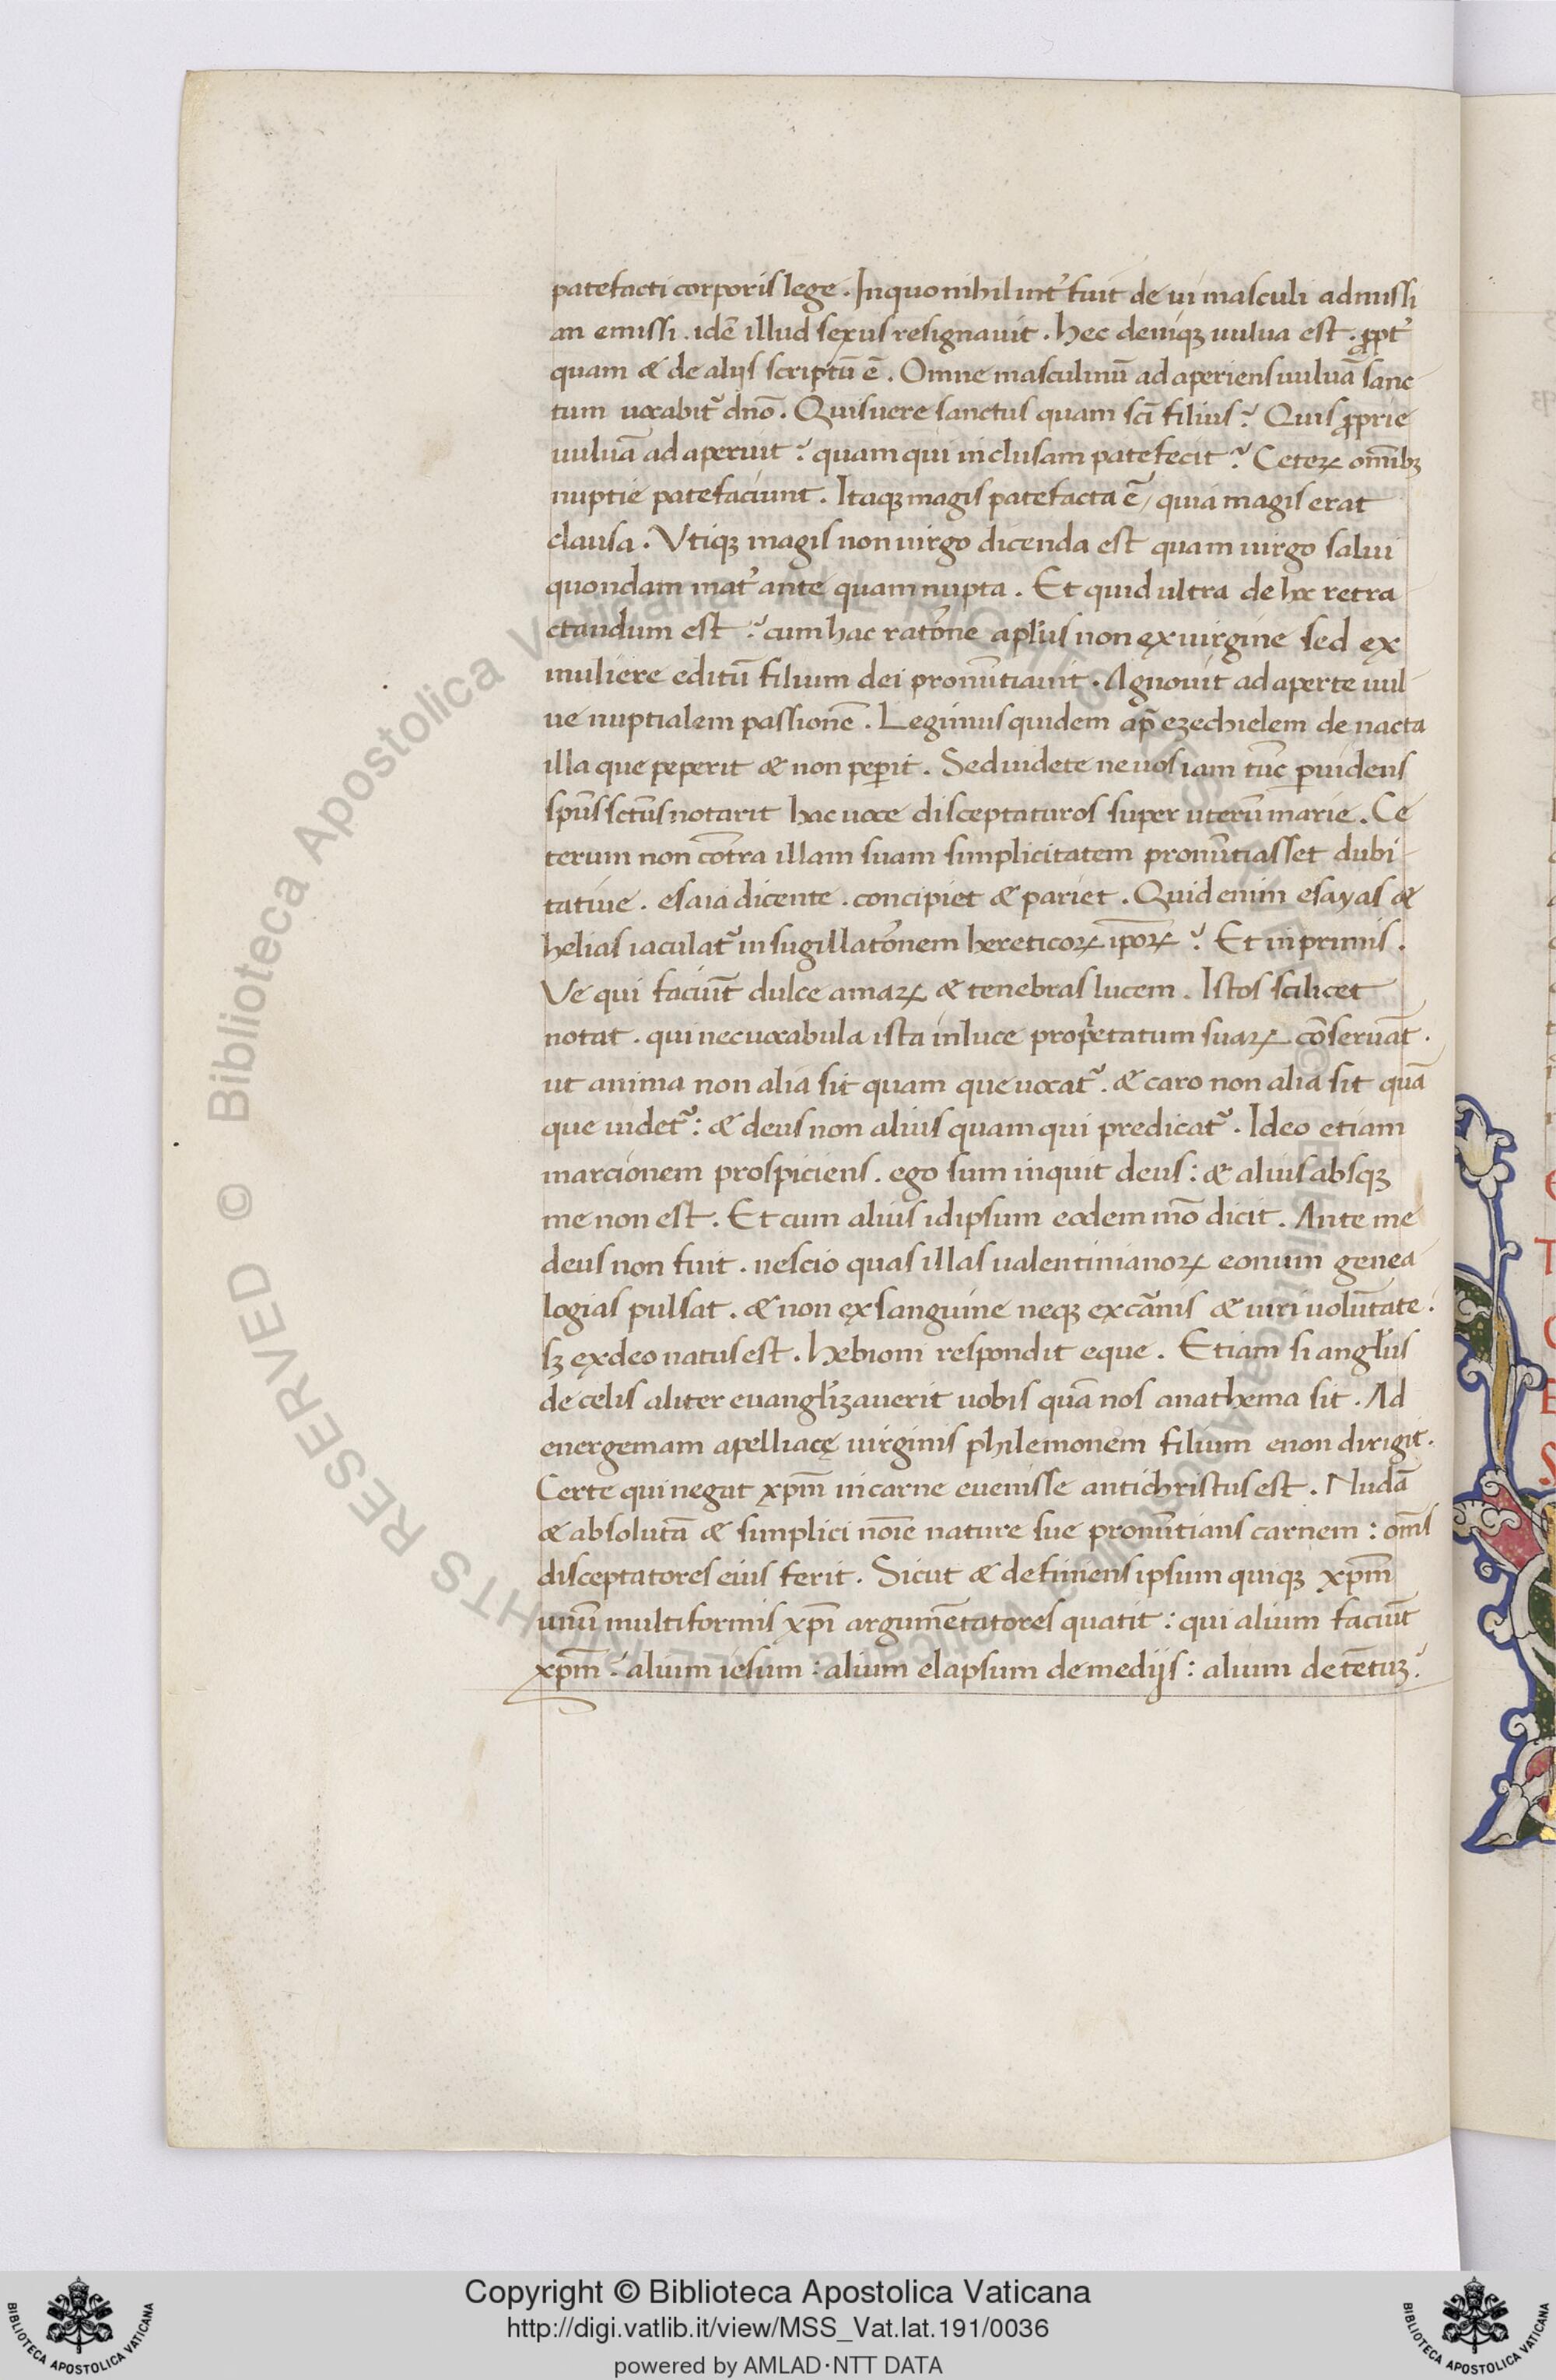 patefacti corporis lege. In quo nihil int᷑fuit de ui masculi admissi
an emissi. idẽ illud sexus resignauit. hec deniqꝫ uulua est. ꝓpt᷑
quam & de alijs scriptũ ẽ. Omne masculinũ adaperiens uuluã sanc
tum uocabit᷑ dño. Quis uere sanctus quam sci filius? Quis ꝓprie
uuluã adaperuit? quam qui inclusam patefecit? Ceteꝝ om̃ibꝫ
nuptie patefaciunt. Itaqꝫ magis patefacta ẽ, quia magis erat
clausa. Vtiqꝫ magis non uirgo dicenda est quam uirgo salui
quondam mat᷑ ante quam nupta. Et quid ultra de hoc retra
ctandum est? cum hac ratõne apl'us non ex uirgine sed ex
muliere editũ filium dei pronũtiauit. Agnouit adaperte uul
ue nuptialem passionẽ. Legimus quidem ap̃ ezechielem de uacta
illa que peperit & non peꝑit. Sed uidete ne uos iam tũc ꝓuidens
spũs sctũs notarit hac uoce disceptaturos super uterũ marie. Ce
terum non cõtra illam suam simplicitatem pronũtiasset dubi
tatiue. esaia dicente. concipiet & pariet. Quid enim esayas &
helias iaculat᷑ in sugillatõnem hereticoꝝ ip̃oꝝ? Et in primis.
Ve qui faciũt dulce amaꝝ & tenebras lucem. Istos scilicet
notat. qui nec uocabula ista in luce propr̃etatum suaꝝ cõseruãt.
ut anima non alia sit quam que uocat᷑. & caro non alia sit quã
que uidet᷑: & deus non alius quam qui predicat᷑. Ideo etiam
marcionem prospiciens. ego sum inquit deus: & alius absqꝫ
me non est. Et cum alius idipsum eodem mõ dicit. Ante me
deus non fuit. nescio quas illas ualentinianoꝝ eonum genea
logias pulsat. & non ex sanguine neqꝫ ex cãnis & uiri volũtate.
sꝫ ex deo natus est. hebioni respondit eque. Etiam si angl'us
de celis aliter euangl'izauerit uobis quã nos anathema sit. Ad
energemam apelliacę uirginis philemonem filium enon dirigit.
Certe qui negat xp̃m in carne euenisse antichristus est. Nudã
& absolutã & simplici noĩe nature sue pronũtians carnem: om̃s
disceptatores eius ferit. Sicut & definiens ipsum quiqꝫ xp̃m
unũ multiformis xp̃i argumẽtatores quatit: qui alium faciũt
xp̃m: alium iesum: alium elapsum de medijs: alium detẽtuꝫ.
© Biblioteca Apostolica Vaticana ALL RIGHTS RESERVED
Copyright © Biblioteca Apostolica Vaticana
http://digi.vatlib.it/view/MSS_Vat.lat.191/0036
powered by AMLAD·NTT DATA
BIBLIOTECA APOSTOLICA VATICANA
BIBLIOTECA APOSTOLICA VATICANA